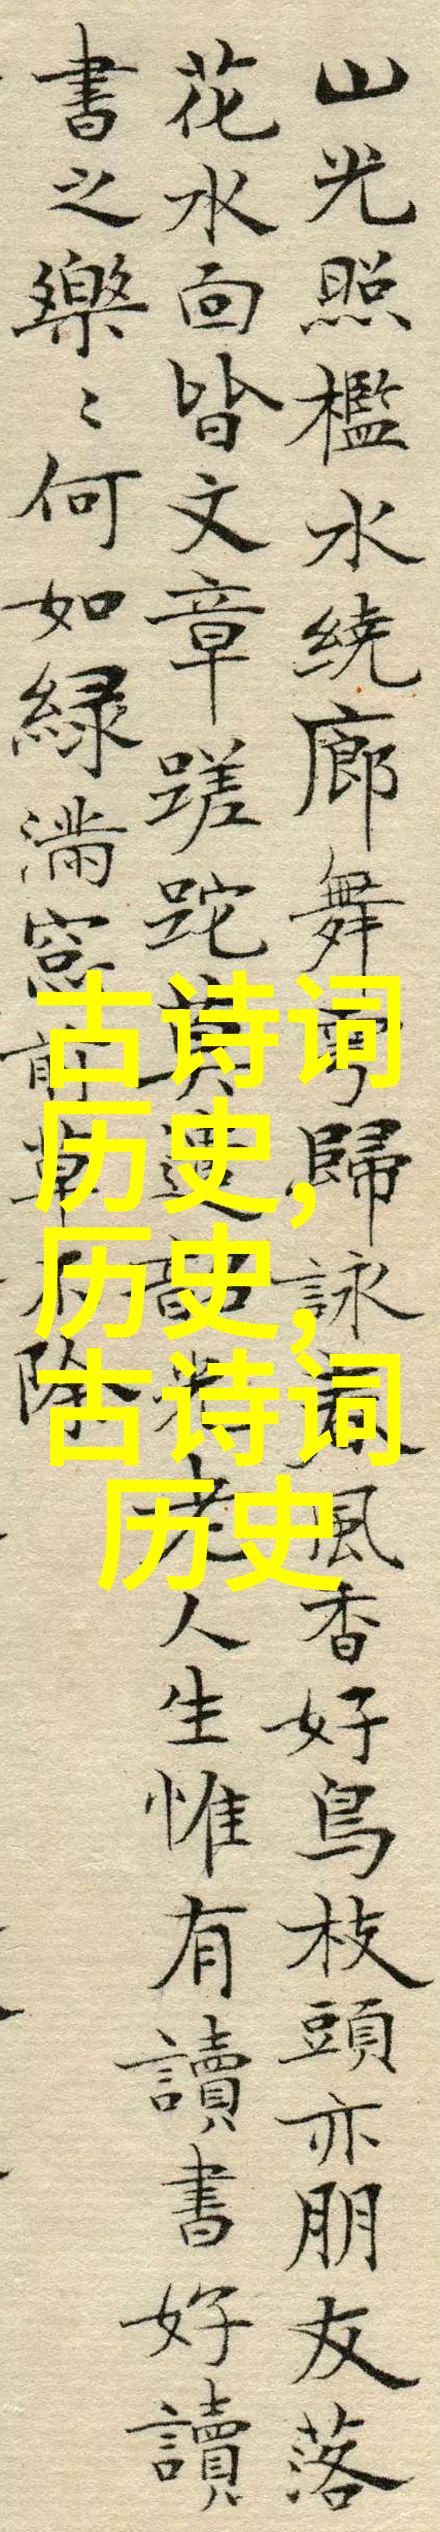 山光照檻水繞廊舞雩歸詠春風香好鳥枝頭亦朋友落
花水面皆文章蹉跎莫遣韶光老人生惟有讀書好讀
書之樂〻何如緑滿窓前草不除
古诗词
历史,
历史,
古诗词
历史